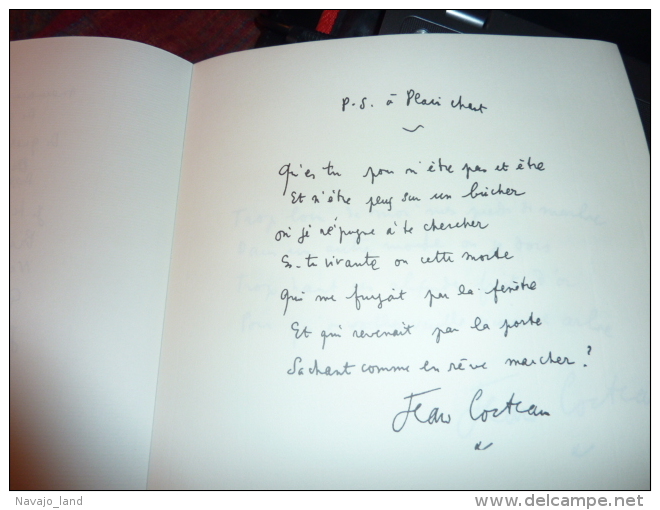 P.S. à Plain chant
Qu'es tu pour n'être pas et être
Et n'être plus sur un bûcher
où je répugne à te chercher
Es-tu vivante ou cette morte
Qui me fuyait par la fenêtre
Et qui revenait par la porte
Sachant comme en rêve marcher?
Jean Cocteau
Navajo_land
www.delcampe.net